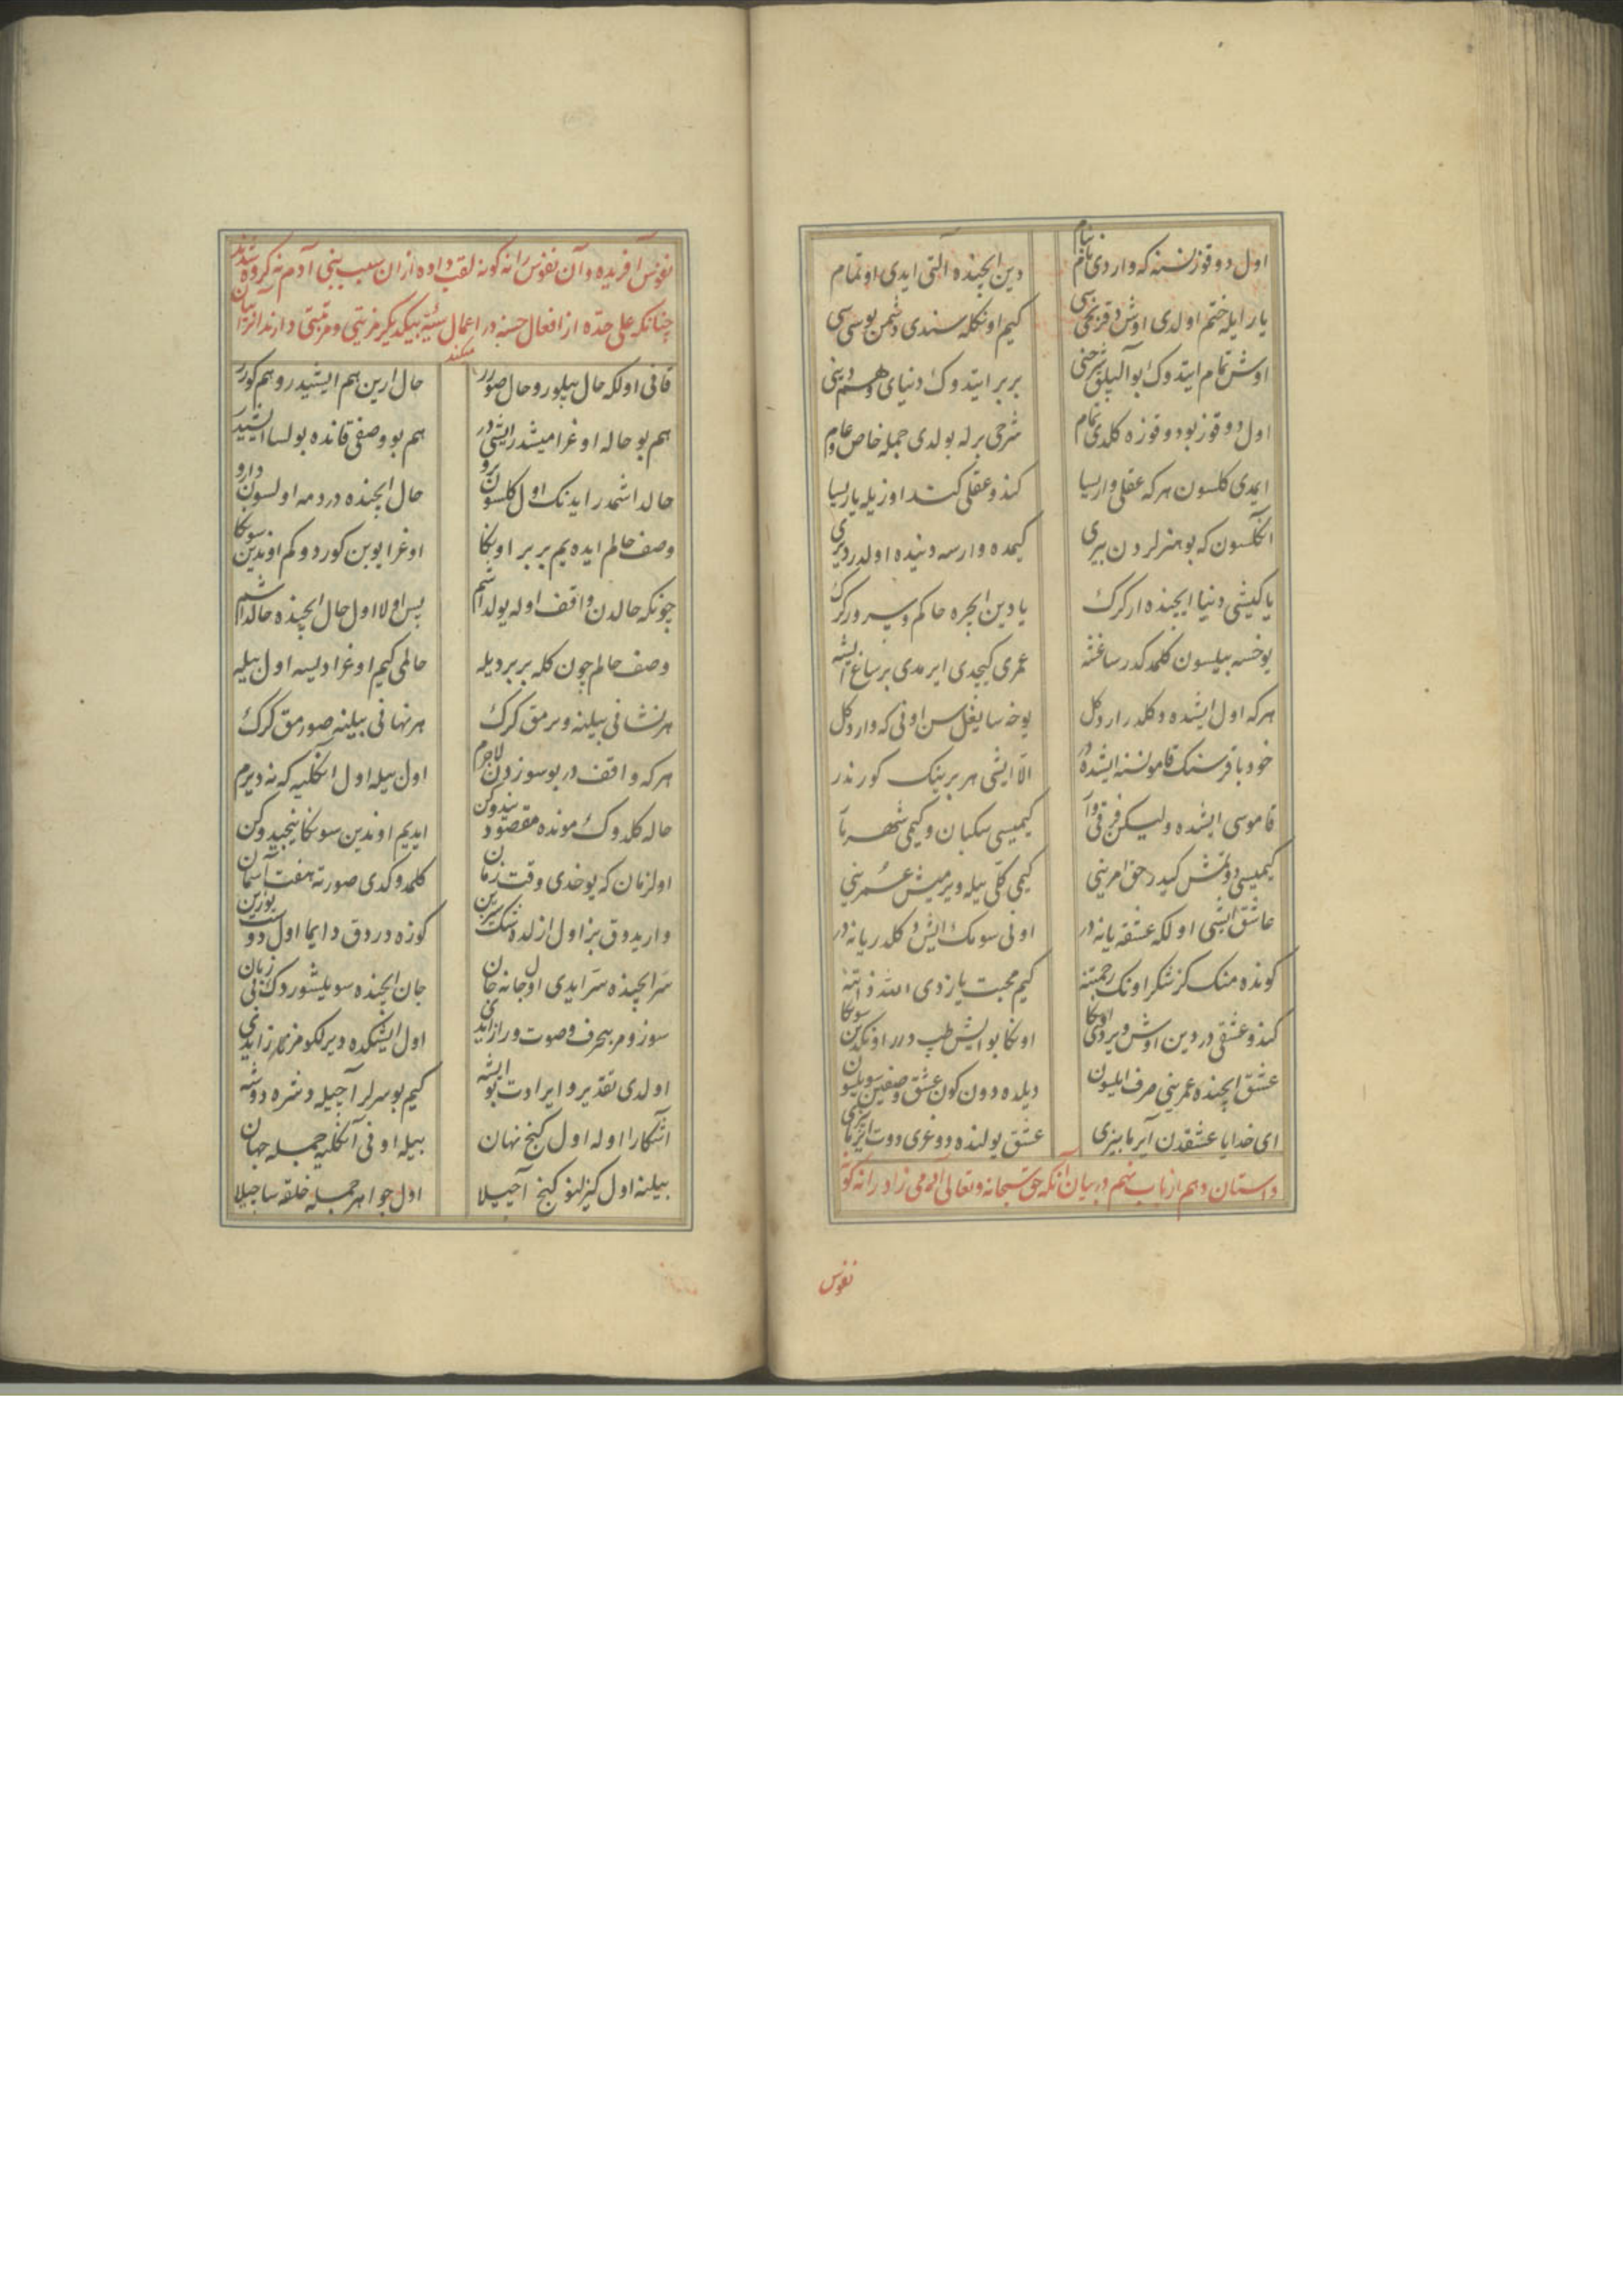 اول دوقوز نسنه که واردی بنام دین ایچنده آلتی ایدی اوتمام
یار ایله ختم اولدی اوش دقزنجی سی کیم اونکله سندی دشمن بوسی سی
اوش تمام ایتدوک بو آلیلق شرحنی بر بر ایتدوک دنیای وهم دینی
اول دوقوز بو دوقوزه کلدی تمام شرحی برله بولدی جمله خاص و عام
ایمدی کلسون هر که عقلی واریسا کندو عقلی کندوزیله یاریسا
آکلسون که بو هنرلردن بیری کیمده وارسه دنیده اولدر دیری
یا کیشی دنیا ایچنده ار کرک یا دین ایچره حاکم و سرور کرک
یوخسه بیلسون کلمدکدر ساغشه عمری کیچدی ایرمدی بر ساغ ایشه
هر که اول ایشده دکلدر ار دکل یوخسا یغلسن اونی که وار دکل
خود باقرسنک قامو نسنه ایشده در الا ایشی هر برینک کورندر
قاموسی ایشده ولیکن فرقی وار کیمیسی سکبان و کیمی شهریار
کیمیسی دوتمش کیدر حق امرینی کیمی کلی ییله ویرمیش عمرینی
عاشق ایشی اولکه عشقه یانه در اونی سومک ایش دکلدر یا نه در
کونده منک کز شکر اونک رحمتنه کیم محبت یازدی الله ذاتنه
کندو عشقی دردین اوش ویردی اوکا اونکا بو ایش طپ درر اوندین سونکا
عشق ایچنده عمرینی صرف ایلسون دیلده دون کون عشق وصفین سویلسون
ای خدایا عشقدن آیرما بیزی عشق یولنده دوغری دوت ایزمیزی
داستان دهم از باب نهم در بیان آنکه حق سبحانه و تعالی آدمی زاد را نه کونه
نفوس
نفوس آفریده و آن نفوس را نه کونه لقب داده از ان سبب بنی آدم نه کروه شدند
چنانکه علی حده از افعال حسنه در اعمال سیئه بیکدیکر مزیتی و مرتبتی دارند آنرا بیان
میکند
قانی اولکه حال بیلور و حال صورر حال ارین هم ایشیدر و هم کورر
هم بو حاله اوغرامیشدر ایشی در هم بو وصفی قانده بولسا ایشیدر
حالداشمدر ایدنک اول کلسون برو حال ایچنده دردمه اولسون دارو
وصف حالم ایده یم بر بر اونکا اوغرایوبن کوردوکم اوندین سونکا
چونکه حالدن واقف اوله یولداشم بس اولا اول حال ایچنده حالداشم
وصف حالم چون کله بر بر دیله حالمی کیم اوغرادیسه اول بیله
هر نشانی بیلنه ویرمق کرک هر نهانی بیلینه صورمق کرک
هر که واقف در بو سوزدن لاجرم اول بیله اول آکلیه که نه دیرم
حاله کلدوک مونده مقصود ایدیم اوندین سونکا نیجیدوکن
اولزمان که یوخدی وقت زمان کلمدوکدی صورته هفت آسمان
واریدوق بز اول ازلده کوزه دردوق دایما اول دوست یوزین
سر ایچنده سر ایدی اول جانه جان جان ایچنده سویلشوردک بی زبان
سوزومز بیحرف و صوت و راز ایدی
اولدی تقدیر و ایرادت بو ایشه کیم بو سرلر آچیله دشره دوشه
آشکارا اوله اول کنج نهان بیله اونی آنکلیه جمله جهان
بیلنه اول کیزلو کنج آچیلا اول جواهر جمله خلقه ساچیلا